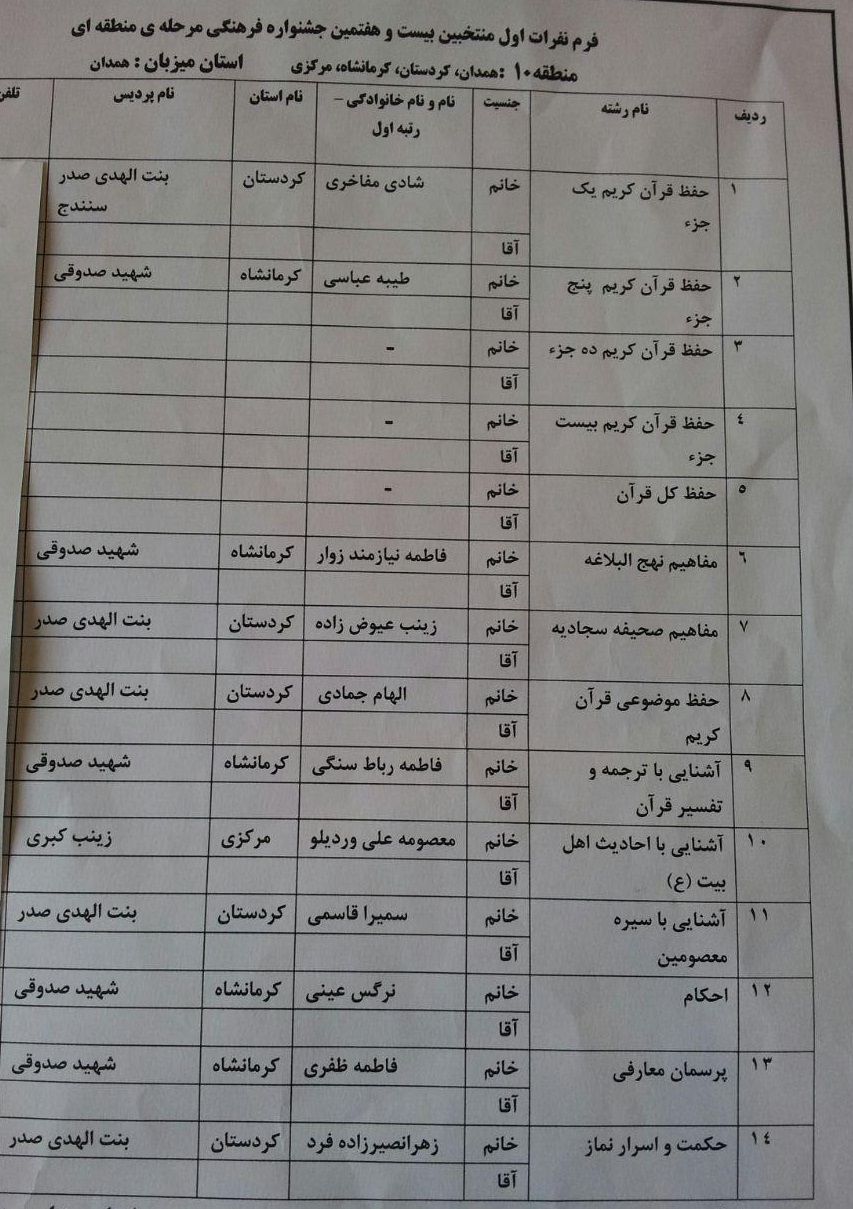 فرم نفرات اول منتخبین بیست و هفتمین جشنواره فرهنگی مرحله ی منطقه ای
منطقه۱۰ :همدان، کردستان، کرمانشاه، مرکزی استان میزبان : همدان
ردیف نام رشته جنسیت نام و نام خانوادگی – نام استان نام پردیس تلفن
رتبه اول
۱ حفظ قرآن کریم یک خانم شادی مفاخری کردستان بنت الهدی صدر
جزء سنندج
آقا
۲ حفظ قرآن کریم پنج خانم طیبه عباسی کرمانشاه شهید صدوقی
جزء آقا
۳ حفظ قرآن کریم ده جزء خانم -
آقا
٤ حفظ قرآن کریم بیست خانم -
جزء آقا
٥ حفظ کل قرآن خانم -
آقا
٦ مفاهیم نهج البلاغه خانم فاطمه نیازمند زوار کرمانشاه شهید صدوقی
آقا
۷ مفاهیم صحیفه سجادیه خانم زینب عیوض زاده کردستان بنت الهدی صدر
آقا
۸ حفظ موضوعی قرآن خانم الهام جمادی کردستان بنت الهدی صدر
کریم آقا
۹ آشنایی با ترجمه و خانم فاطمه رباط سنگی کرمانشاه شهید صدوقی
تفسیر قرآن آقا
۱۰ آشنایی با احادیث اهل خانم معصومه علی وردیلو مرکزی زینب کبری
بیت (ع) آقا
۱۱ آشنایی با سیره خانم سمیرا قاسمی کردستان بنت الهدی صدر
معصومین آقا
۱۲ احکام خانم نرگس عینی کرمانشاه شهید صدوقی
آقا
۱۳ پرسمان معارفی خانم فاطمه ظفری کرمانشاه شهید صدوقی
آقا
۱٤ حکمت و اسرار نماز خانم زهرانصیرزاده فرد کردستان بنت الهدی صدر
آقا